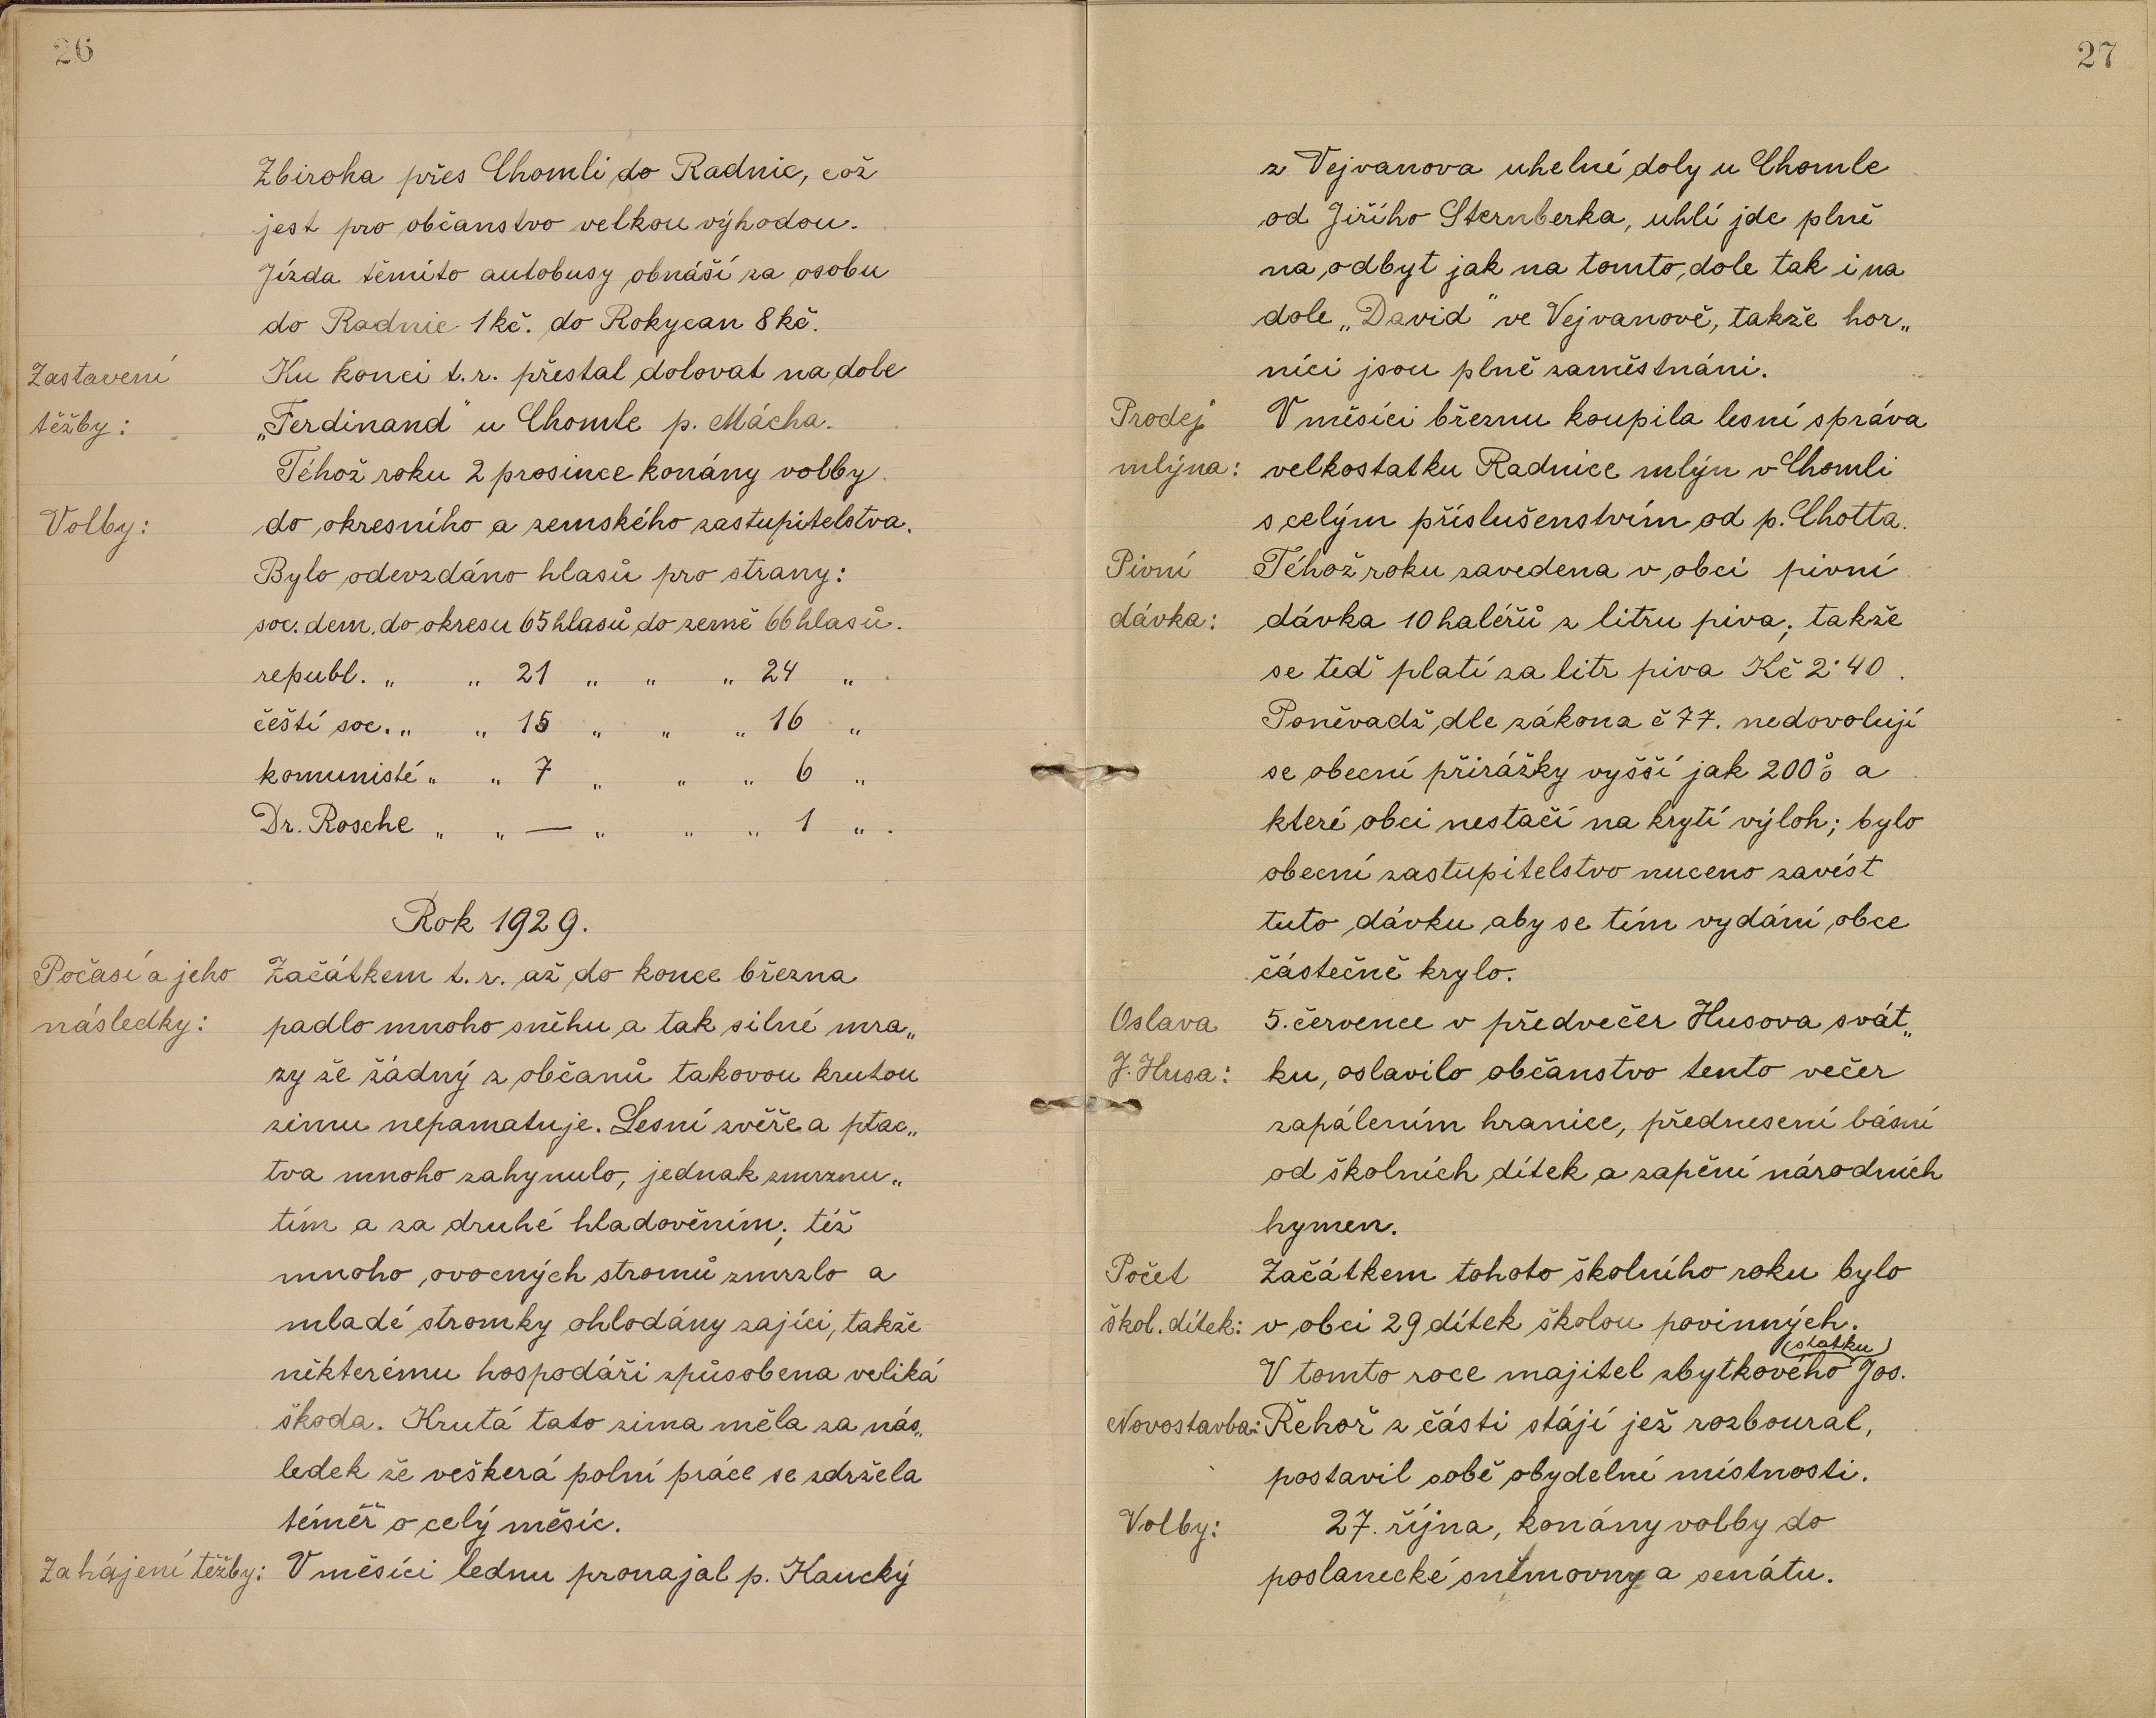 26
Zbiroha přes Chomli do Radnic, což
jest pro občanstvo velkou výhodou.
Jízda těmito autobusy obnáší za osobu
do Radnic 1 kč. do Rokycan 8 kč.
Zastavení Ku konci t. r. přestal dolovat na dole
těžby: „Ferdinand" u Chomle p. Mácha.
Téhož roku 2 prosince konány volby
Volby: do okresního a zemského zastupitelstva.
Bylo odevzdáno hlasů pro strany:
soc. dem. do okresu 65 hlasů do země 66 hlasů.
republ. „ „ 21 „ „ „ 24 „
čeští soc. „ „ 15 „ „ „ 16 „
komunisté „ „ 7 „ „ „ 6 „
Dr. Rosche „ „ — „ „ „ 1 „.
Rok 1929.
Počasí a jeho Začátkem t. r. až do konce března
následky: padlo mnoho sněhu a tak silné mra„
zy že žádný z občanů takovou krutou
zimu nepamatuje. Lesní zvěře a ptac„
tva mnoho zahynulo, jednak zmrznu„
tím a za druhé hladověním; též
mnoho ovocných stromů zmrzlo a
mladé stromky ohlodány zajíci, takže
některému hospodáři způsobena veliká
škoda. Krutá tato zima měla za nás„
ledek že veškerá polní práce se zdržela
téměř o celý měsíc.
Zahájení těžby: V měsíci lednu pronajal p. Kaucký
27
z Vejvanova uhelné doly u Chomle
od Jiřího Sternberka, uhlí jde plně
na odbyt jak na tomto dole tak i na
dole „David" ve Vejvanově, takže hor„
níci jsou plně zaměstnáni.
Prodej V měsíci březnu koupila lesní správa
mlýna: velkostatku Radnice mlýn v Chomli
s celým příslušenstvím od p. Chotta.
Pivní Téhož roku zavedena v obci pivní
dávka: dávka 10 haléřů z litru piva; takže
se teď platí za litr piva Kč 2·40.
Poněvadž dle zákona č 77. nedovolují
se obecní přirážky vyšší jak 200% a
které obci nestačí na krytí výloh; bylo
obecní zastupitelstvo nuceno zavést
tuto dávku aby se tím vydání obce
částečně krylo.
Oslava 5. července v předvečer Husova svát„
J. Husa: ku, oslavilo občanstvo tento večer
zapálením hranice, přednesení básní
od školních dítek a zapění národních
hymen.
Počet Začátkem tohoto školního roku bylo
škol. dítek: v obci 29 dítek školou povinných.
(statku)
V tomto roce majitel zbytkového Jos.
Novostavba: Řehoř z části stájí jež rozboural,
postavil sobě obydelní místnosti.
Volby: 27. října, konány volby do
poslanecké sněmovny a senátu.